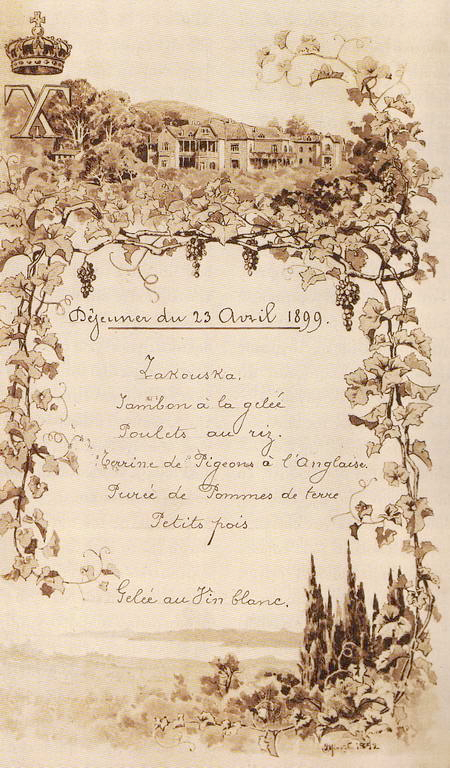 Déjeuner du 23 Avril 1899.
Zakouska.
Jambon à la gelée
Poulets au riz.
Terrine de Pigeons à l'Anglaise.
Purée de Pommes de terre
Petits pois
Gelée au Vin blanc.
1892